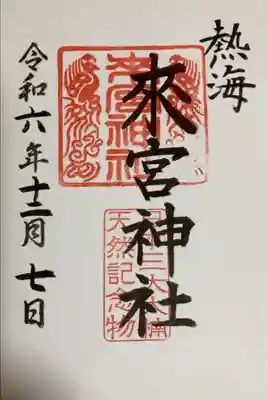 熱海
來宮神社
天然記念物
令和六年十二月七日